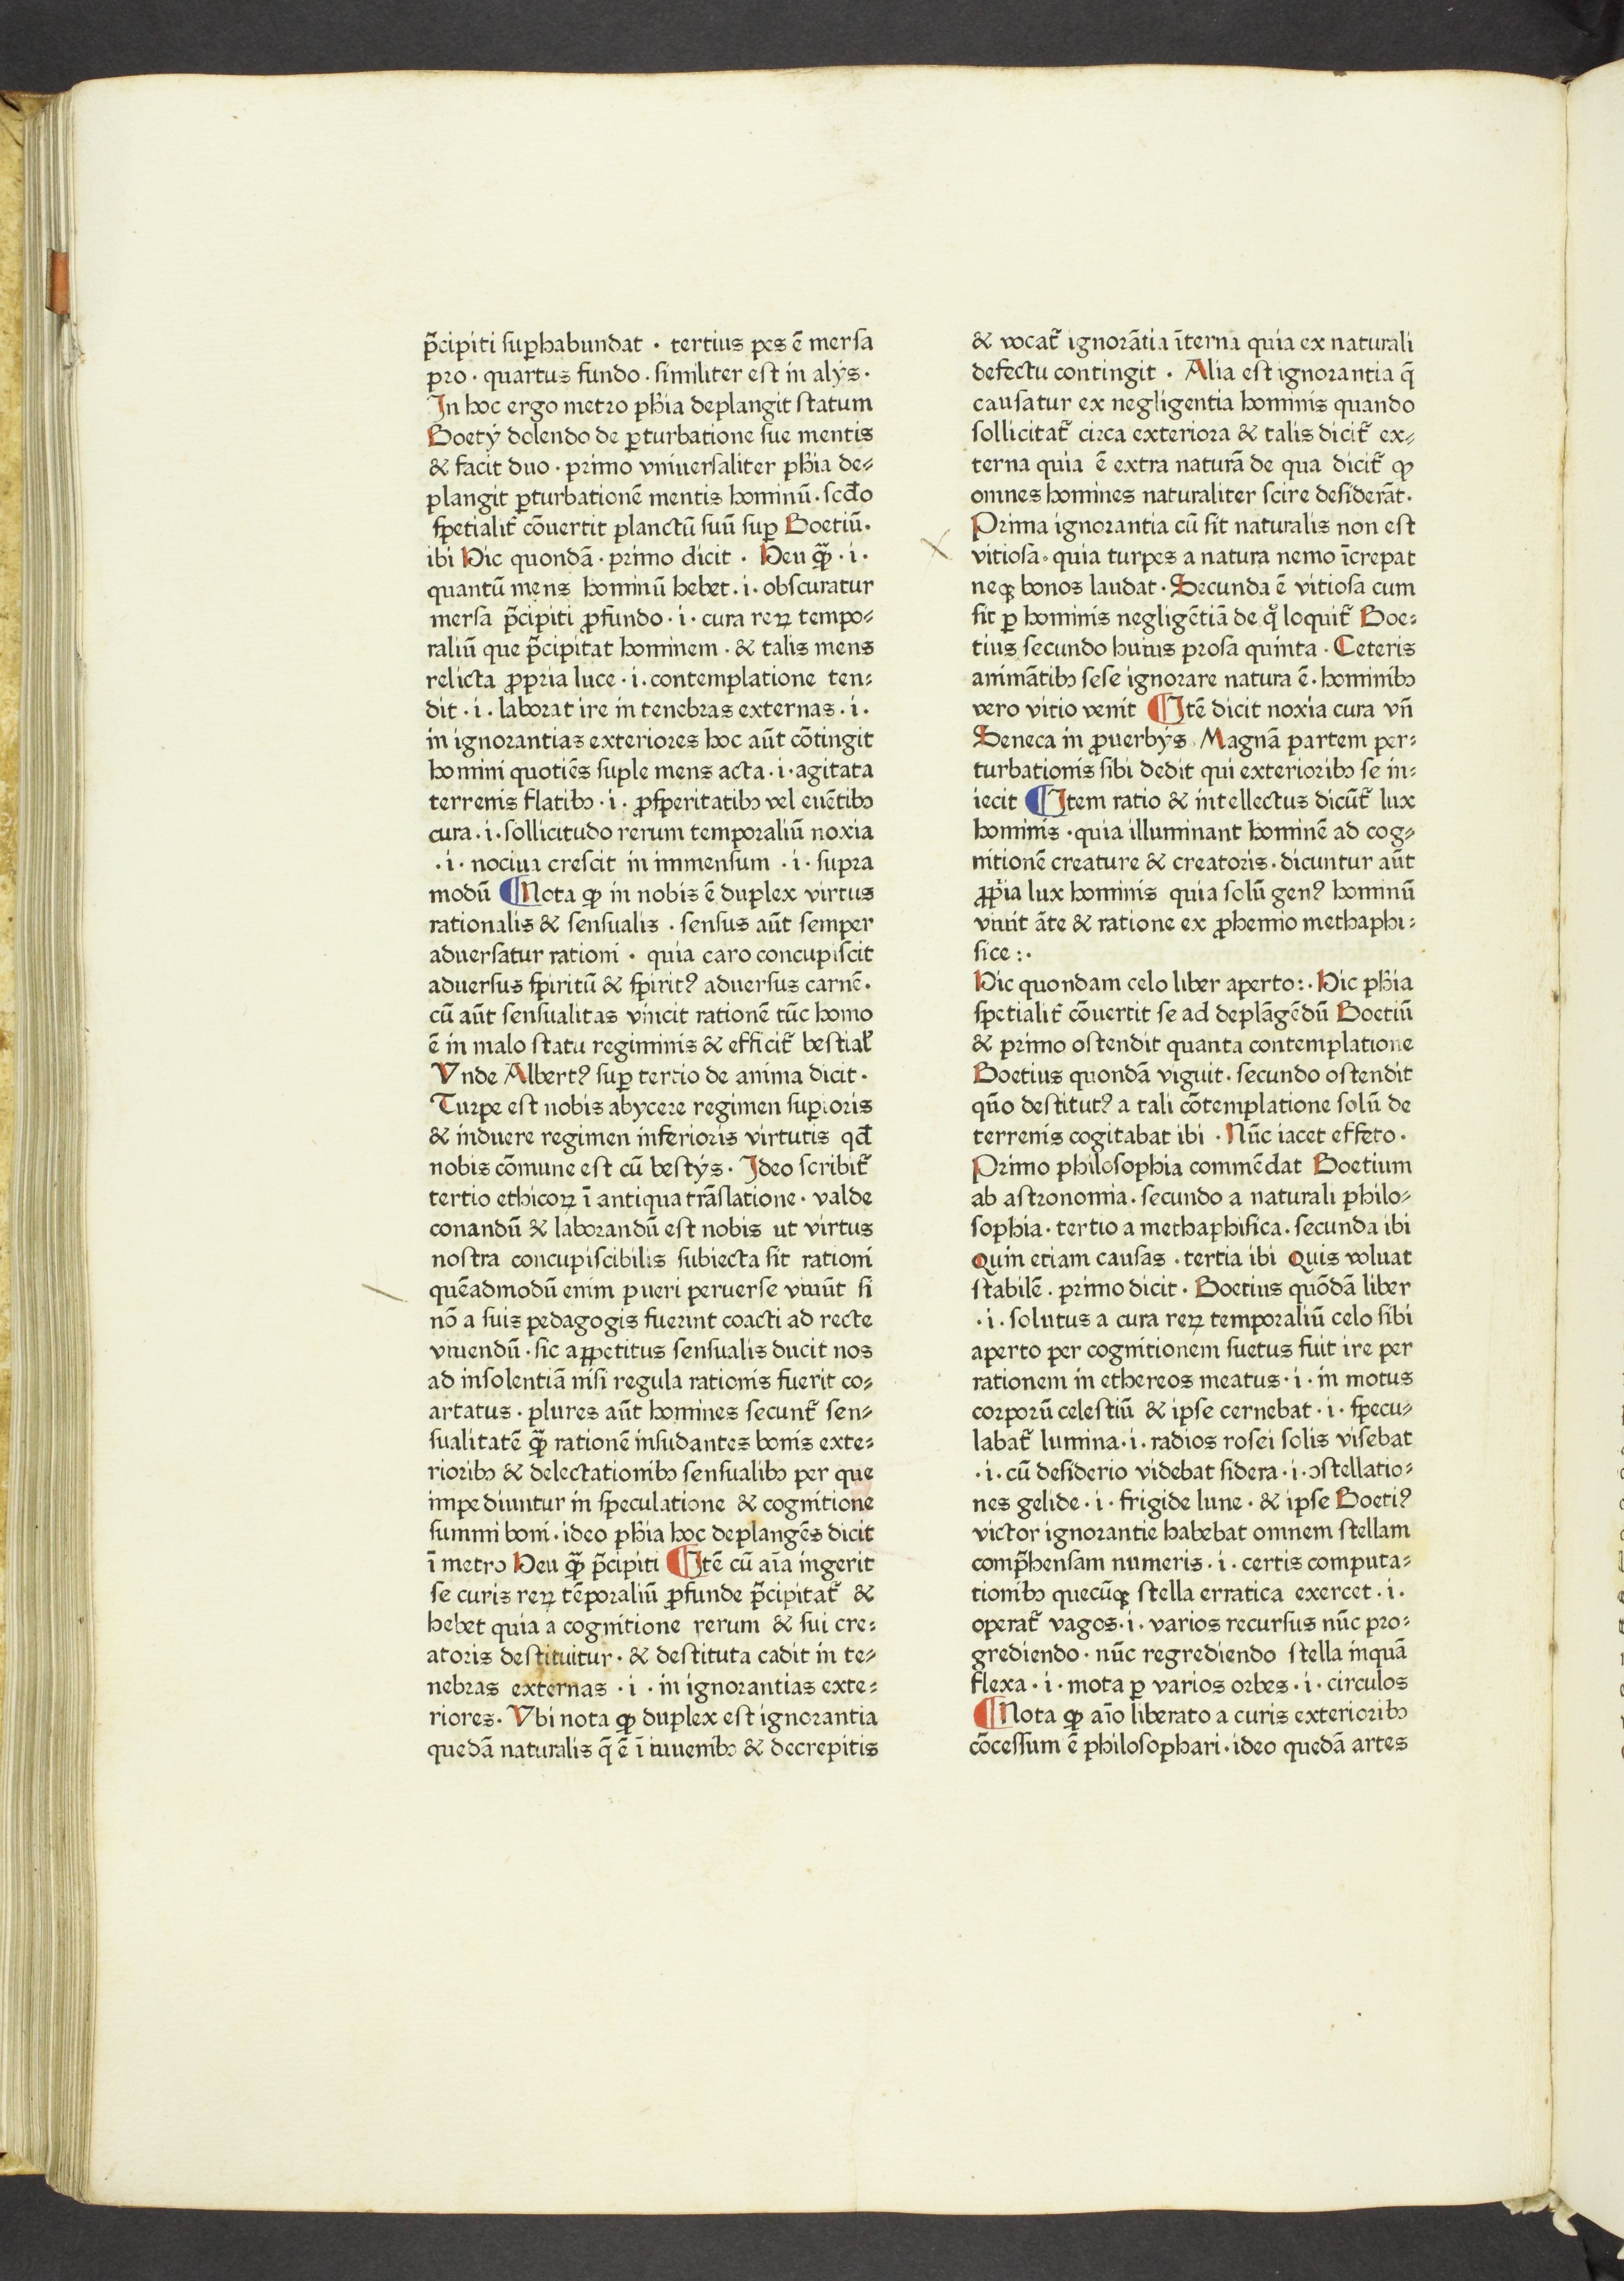 p̄cipiti suꝑhabundat · tertius pes ē mersa
pro · quartus fundo · similiter est in alijs ·
In hoc ergo metro ph̄ia deplangit statum
Boetij dolendo de ꝑturbatione sue mentis
& facit duo · primo vniuersaliter ph̄ia de⸗
plangit ꝑturbationē mentis hominū · scd̄o
spetialit᷑ cōuertit planctū suū suꝑ Boetiū ·
ibi Hic quondā · primo dicit · Heu ꝙ̄ · i ·
quantū mens hominū hebet · i · obscuratur
mersa p̄cipiti ꝓfundo · i · cura reꝝ tempo⸗
raliū que p̄cipitat hominem · & talis mens
relicta ꝓpria luce · i · contemplatione ten⸗
dit · i · laborat ire in tenebras externas · i ·
in ignorantias exteriores hoc aūt cōtingit
homini quotiēs suple mens acta · i · agitata
terrenis flatibꝫ · i · ꝓsperitatibꝫ vel euētibꝫ
cura · i · sollicitudo rerum temporaliū noxia
· i · nociua crescit in immensum · i · supra
modū ¶ Nota ꝙ in nobis ē duplex virtus
rationalis & sensualis · sensus aūt semper
aduersatur rationi · quia caro concupiscit
aduersus spiritū & spiritꝰ aduersus carnē ·
cū aūt sensualitas vincit rationē tūc homo
ē in malo statu regiminis & efficit᷑ bestial᷑
Vnde Albertꝰ suꝑ tertio de anima dicit ·
Turpe est nobis abycere regimen suꝑioris
& induere regimen inferioris virtutis qd̄
nobis cōmune est cū bestijs · Ideo scribit᷑
tertio ethicoꝝ ī antiqua trāslatione · valde
conandū & laborandū est nobis ut virtus
nostra concupiscibilis subiecta sit rationi
quēadmodū enim pueri peruerse viuūt si
nō a suis pedagogis fuerint coacti ad recte
viuendū · sic appetitus sensualis ducit nos
ad insolentiā nisi regula rationis fuerit co⸗
artatus · plures aūt homines secunt᷑ sen⸗
sualitatē ꝙ̄ rationē insudantes bonis exte⸗
rioribꝫ & delectationibꝫ sensualibꝫ per que
impediuntur in speculatione & cognitione
summi boni · ideo ph̄ia hoc deplangēs dicit
ī metro Heu ꝙ̄ p̄cipiti ¶ Itē cū aīa ingerit
se curis reꝝ tēporaliū ꝓfunde p̄cipitat᷑ &
hebet quia a cognitione rerum & sui cre⸗
atoris destituitur · & destituta cadit in te⸗
nebras externas · i · in ignorantias exte⸗
riores · Vbi nota ꝙ duplex est ignorantia
quedā naturalis q̄ ē ī iuuenibꝫ & decrepitis
& vocat᷑ ignorātia īterna quia ex naturali
defectu contingit · Alia est ignorantia q̄
causatur ex negligentia hominis quando
sollicitat᷑ circa exteriora & talis dicit᷑ ex⸗
terna quia ē extra naturā de qua dicit᷑ ꝙ
omnes homines naturaliter scire desiderāt ·
Prima ignorantia cū sit naturalis non est
vitiosa · quia turpes a natura nemo īcrepat
neqꝫ bonos laudat · Secunda ē vitiosa cum
sit ꝑ hominis negligētiā de qͣ loquit᷑ Boe⸗
tius secundo huius prosa quinta · Ceteris
animātibꝫ sese ignorare natura ē · hominibꝫ
vero vitio venit ¶ Itē dicit noxia cura vn̄
Seneca in ꝓuerbijs · Magnā partem per⸗
turbationis sibi dedit qui exterioribꝫ se in⸗
iecit ¶ Item ratio & intellectus dicūt᷑ lux
hominis · quia illuminant hominē ad cog⸗
nitionē creature & creatoris · dicuntur aūt
ꝓp̄ia lux hominis quia solū genꝰ hominū
viuit āte & ratione ex ꝓhemio methaphi⸗
sice : ·
Hic quondam celo liber aperto : · Hic ph̄ia
spetialit᷑ cōuertit se ad deplāgēdū Boetiū
& primo ostendit quanta contemplatione
Boetius quondā viguit · secundo ostendit
qūo destitutꝰ a tali cōtemplatione solū de
terrenis cogitabat ibi · Nūc iacet effeto ·
Primo philosophia commēdat Boetium
ab astronomia · secundo a naturali philo⸗
sophia · tertio a methaphisica · secunda ibi
Quin etiam causas · tertia ibi Quis voluat
stabilē · primo dicit · Boetius quōdā liber
· i · solutus a cura reꝝ temporaliū celo sibi
aperto per cognitionem suetus fuit ire per
rationem in ethereos meatus · i · in motus
corporū celestiū & ipse cernebat · i · specu⸗
labat᷑ lumina · i · radios rosei solis visebat
· i · cū desiderio videbat sidera · i · ꝯstellatio⸗
nes gelide · i · frigide lune · & ipse Boetiꝰ
victor ignorantie habebat omnem stellam
comp̄hensam numeris · i · certis computa⸗
tionibꝫ quecūqꝫ stella erratica exercet · i ·
operat᷑ vagos · i · varios recursus nūc pro⸗
grediendo · nūc regrediendo stella inquā
flexa · i · mota ꝑ varios orbes · i · circulos
¶ Nota ꝙ aīo liberato a curis exterioribꝫ
cōcessum ē philosophari · ideo quedā artes